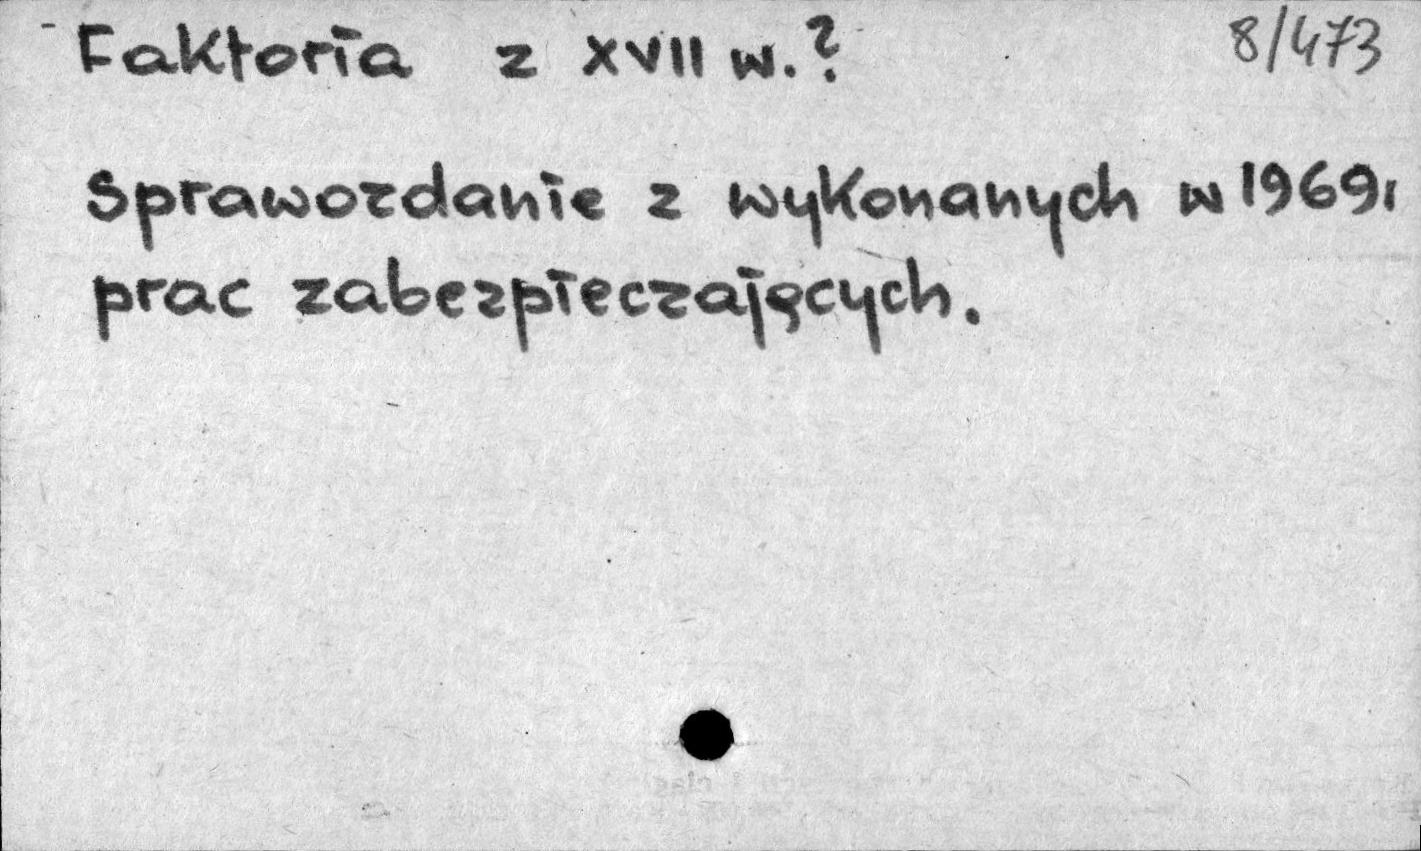 Faktoria z XVII w.? 8/473
Sprawozdanie z wykonanych w 1969r
prac zabezpieczających.